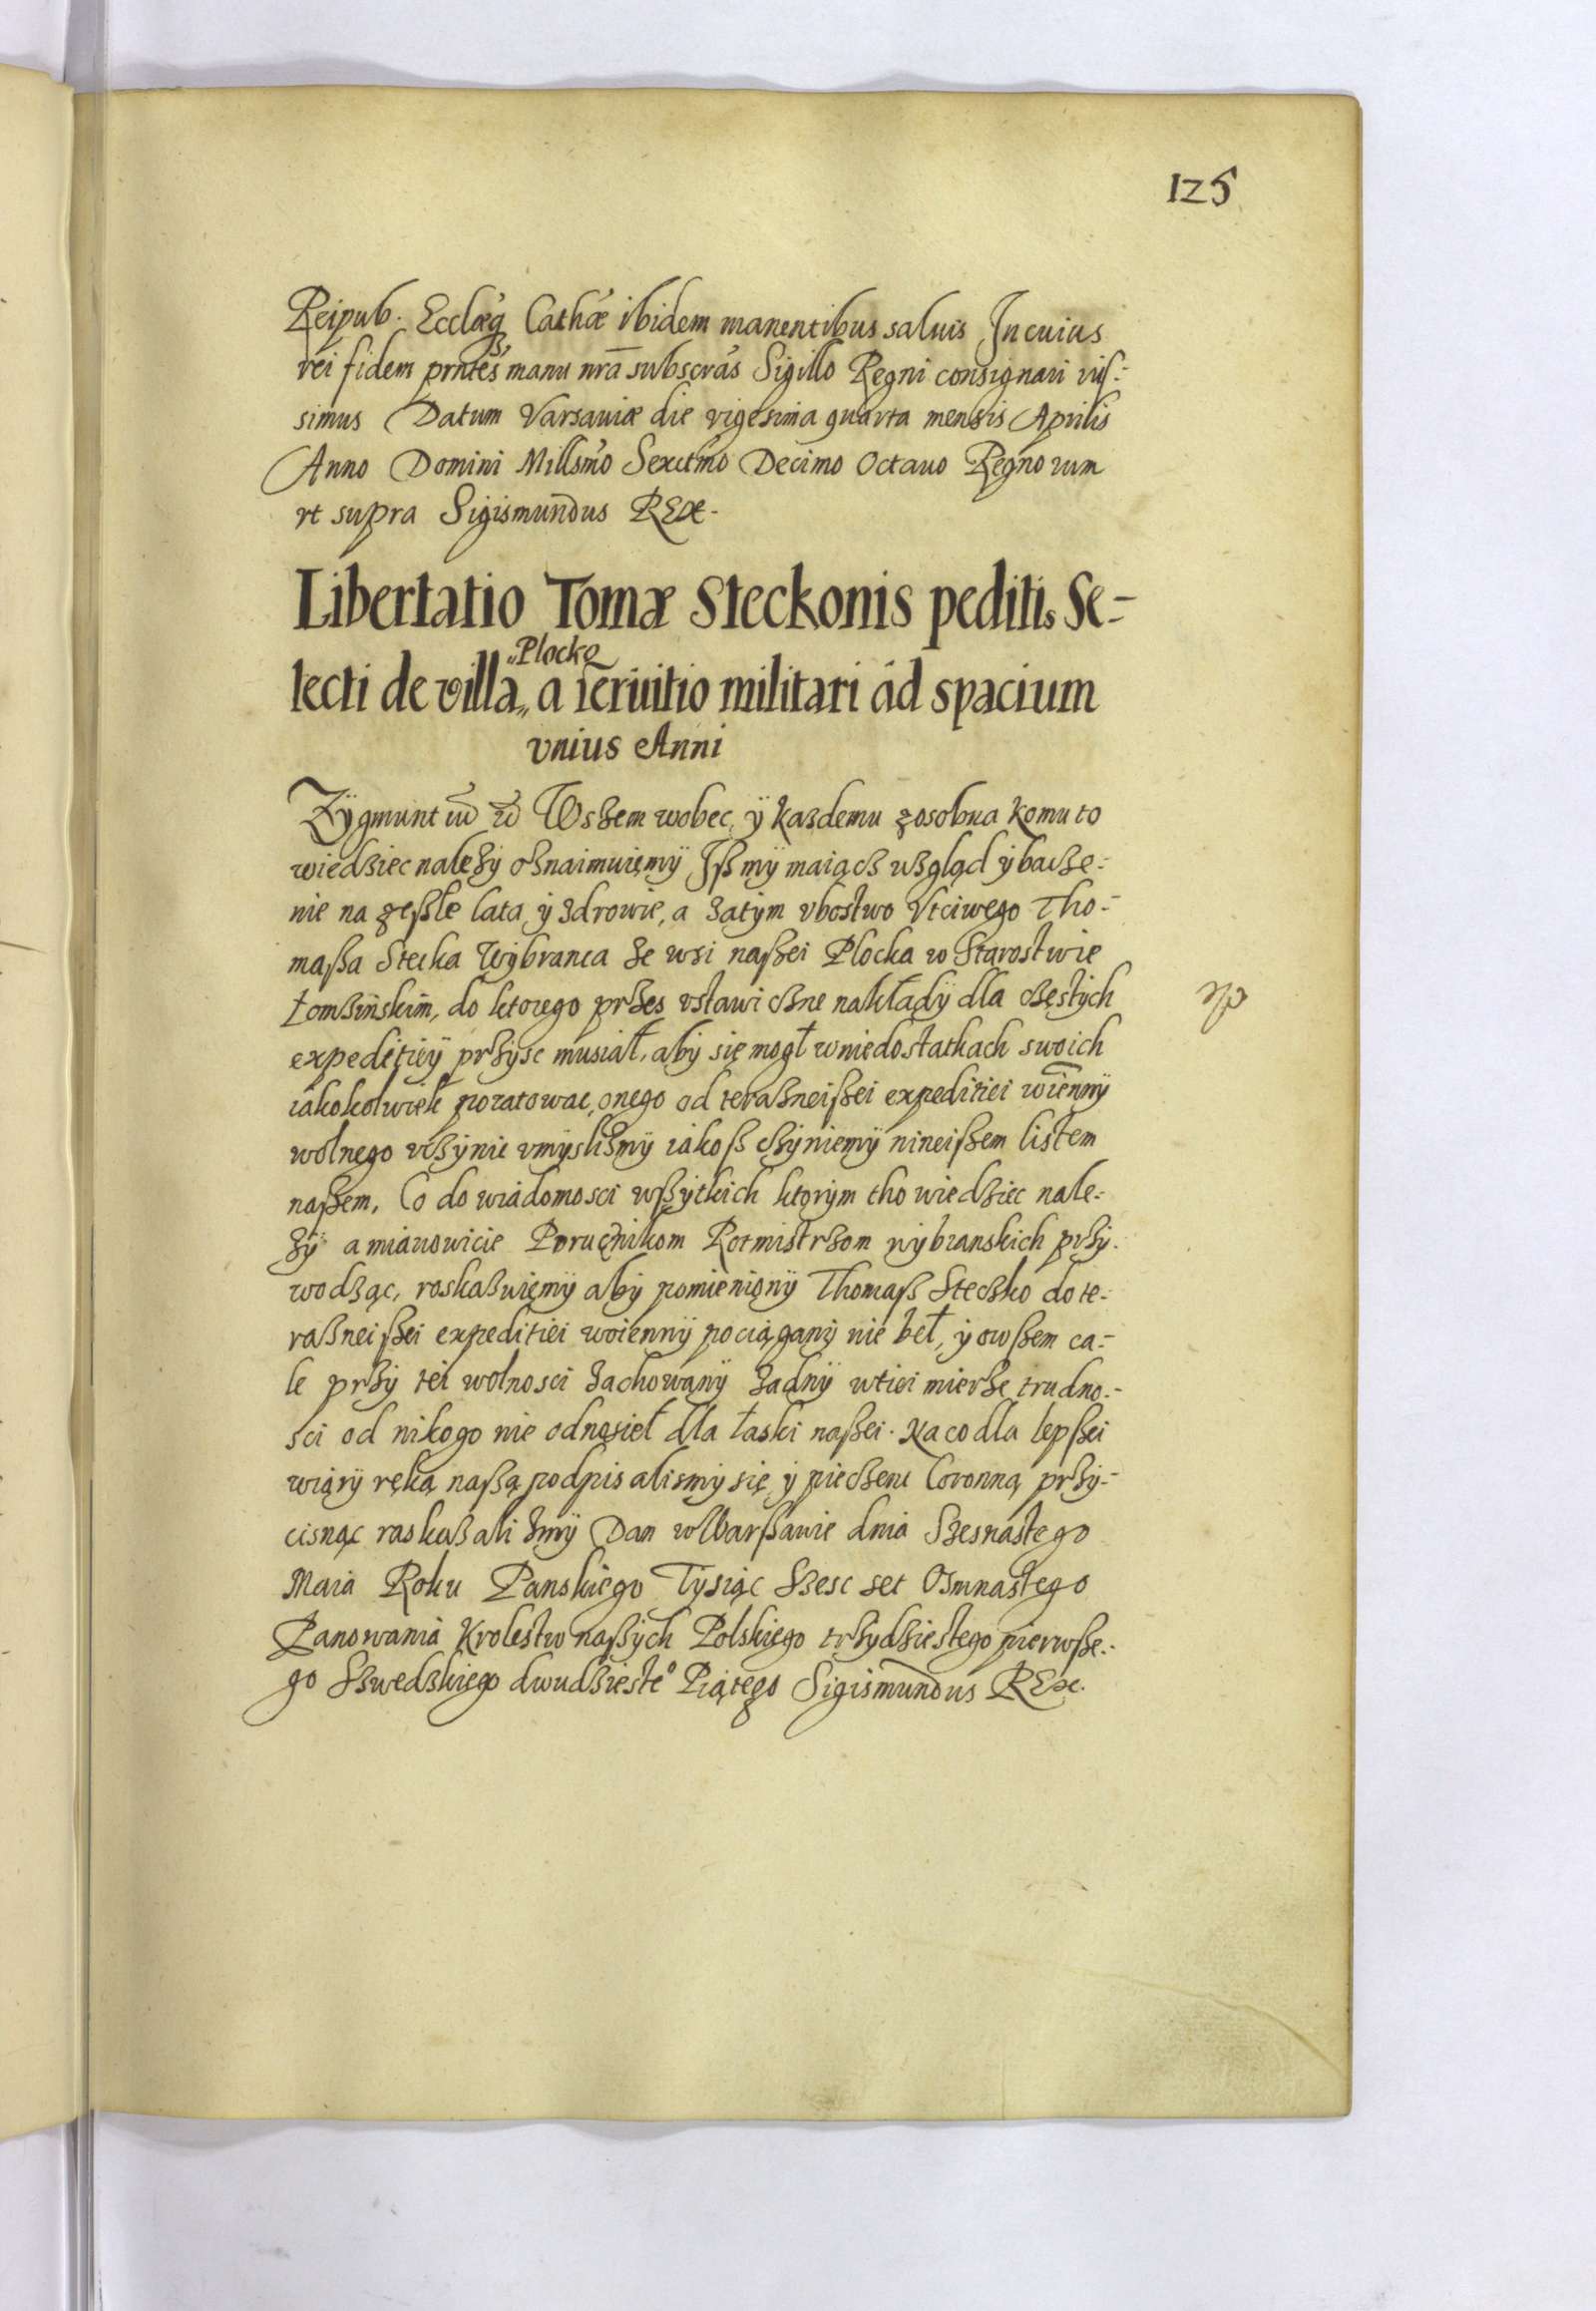 125
Reipub. Ecclæq́ Cathæ ibidem manentibus saluis In cuius
rei fidem prntes manu nrā subscras Sigillo Regni consignari ius-
simus Datum Varsaviæ die vigesima quarta mensis Aprilis
Anno Domini Millsmo Sexctmo Decimo Octauo Regnorum
vt supra Sigismundus REX.
Libertatio Tomæ Steckonis peditis Se-
lecti de villa „Plocko„ a seruitio militari ad spacium
vnius Anni
Zÿgmunt Wszem wobec ÿ kazdemu zosobna komu to
wiedziec nalezÿ oznaimuięmÿ Iß mÿ maiącz wzgląd ÿ bacze-
nie na zeßłe lata ÿ zdrowie, a zatÿm vbostwo Vtciwego Tho-
maßa Stecka Wÿbranca ze wsi naßei Plocka w Starostwie
Łomzÿnskim, do ktorego przes vstawiczne nakładÿ dla częstÿch
expeditiÿ przÿsc musiał, abÿ się mogł w niedostatkach swoich
iakokolwiek poratowac, onego od teraznieißei expeditiei woiennÿ
wolnego vczÿnic vmÿslizmÿ iakoß czÿniemÿ nineißem listem
naßem, Co do wiadomosci wßÿtkich ktorÿm tho wiedziec nale-
zÿ a mianowicie Porucznikom Rotmistrzom wÿbranskich przÿ-
wodząc, roskazuięmÿ abÿ pomienionÿ Thomaß Steczko do te-
razneißei expeditiei woiennÿ pociąganÿ nie beł, ÿ owßem ca-
le przÿ tei wolnosci zachowanÿ zadnÿ w tiei mierze trudno-
sci od nikogo nie odnosieł dla łaski naßei. Na co dla lepßei
wiarÿ ręką naßą podpisalismÿ się ÿ pieczenc Coronną przÿ-
cisnąc raskazali zmÿ Dan w Warßawie dnia Szesnastego
Maia Roku Panskiego Tÿsiąc Szesc set Osmnastego
Panowania Krolestw naßÿch Polskiego trzÿdziestego pierwße-
go Szwedzkiego dwudzieste° Piątego Sigismundus REX.